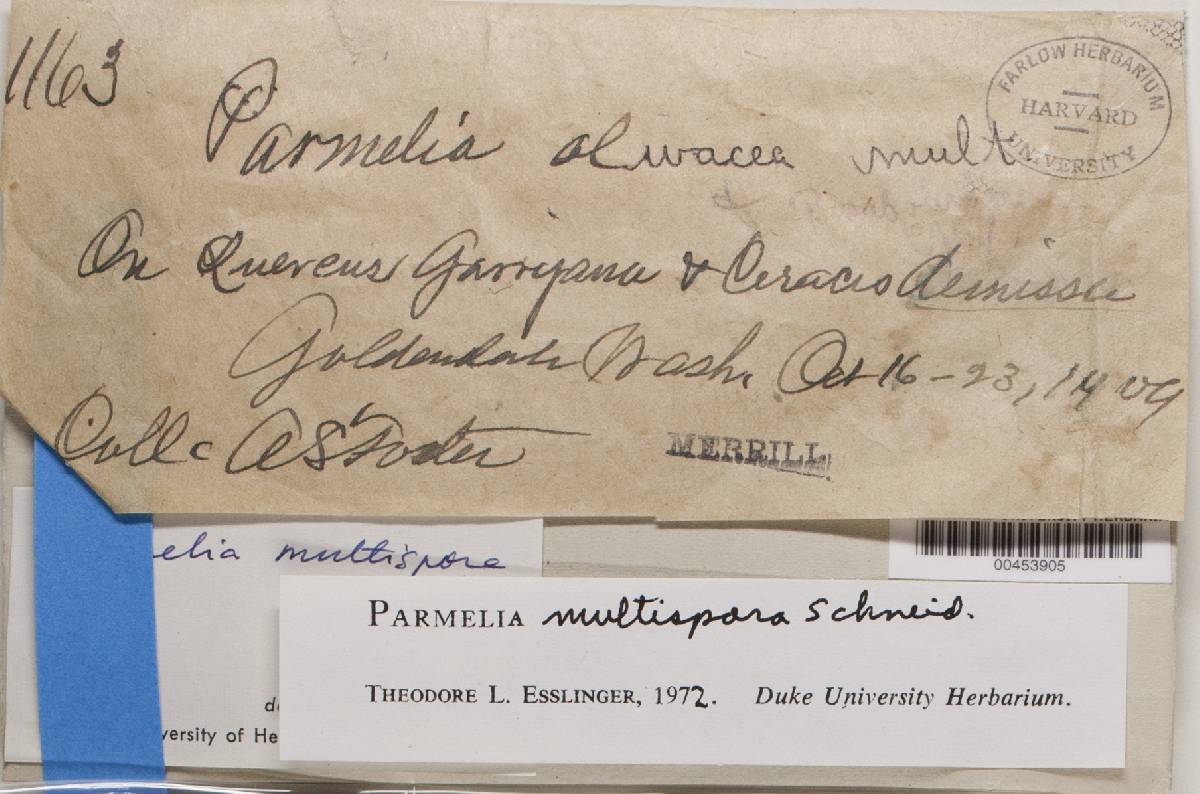 1163
FARLOW HERBARIUM
HARVARD
UNIVERSITY
Parmelia olivacea mult
On Quercus Garryana & Ceracis demissa
Goldendale Wash. Oct 16-23, 1909
Coll. AS Foster
MERRILL
elia multispora
00453905
PARMELIA multispora Schneid.
THEODORE L. ESSLINGER, 1972. Duke University Herbarium.
de
versity of He